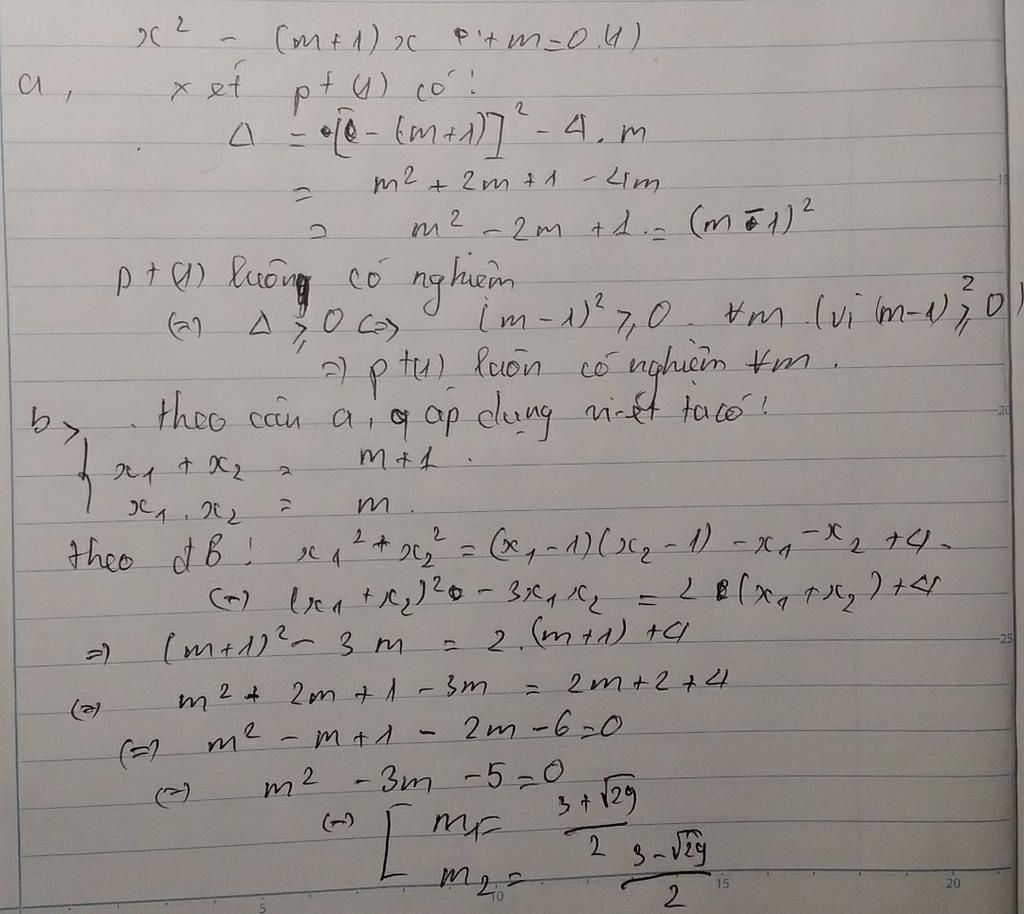 x² - (m+1)x + m=0 (1)
a, xét pt (1) có:
Δ = [-(m+1)]² - 4.m
= m² + 2m + 1 - 4m
= m² - 2m + 1 = (m-1)²
pt (1) luôn có nghiệm
(=) Δ ≥ 0 <=> (m-1)² ≥ 0 ∀m (vì (m-1)² ≥ 0)
=) pt(1) luôn có nghiệm ∀m.
b> theo câu a, áp dụng vi-ét ta có:
{ x₁ + x₂ = m+1.
x₁ . x₂ = m.
theo đB: x₁² + x₂² = (x₁-1)(x₂-1) - x₁ - x₂ + 4
(=) (x₁ + x₂)² - 3x₁x₂ = 2(x₁ + x₂) + 4
=) (m+1)² - 3m = 2.(m+1) + 4
(=) m² + 2m + 1 - 3m = 2m + 2 + 4
(=) m² - m + 1 - 2m - 6 = 0
(=) m² - 3m - 5 = 0
(=) [ m₁ = 3+√29 / 2
m₂ = 3-√29 / 2
5 10 15 20
15
20
25